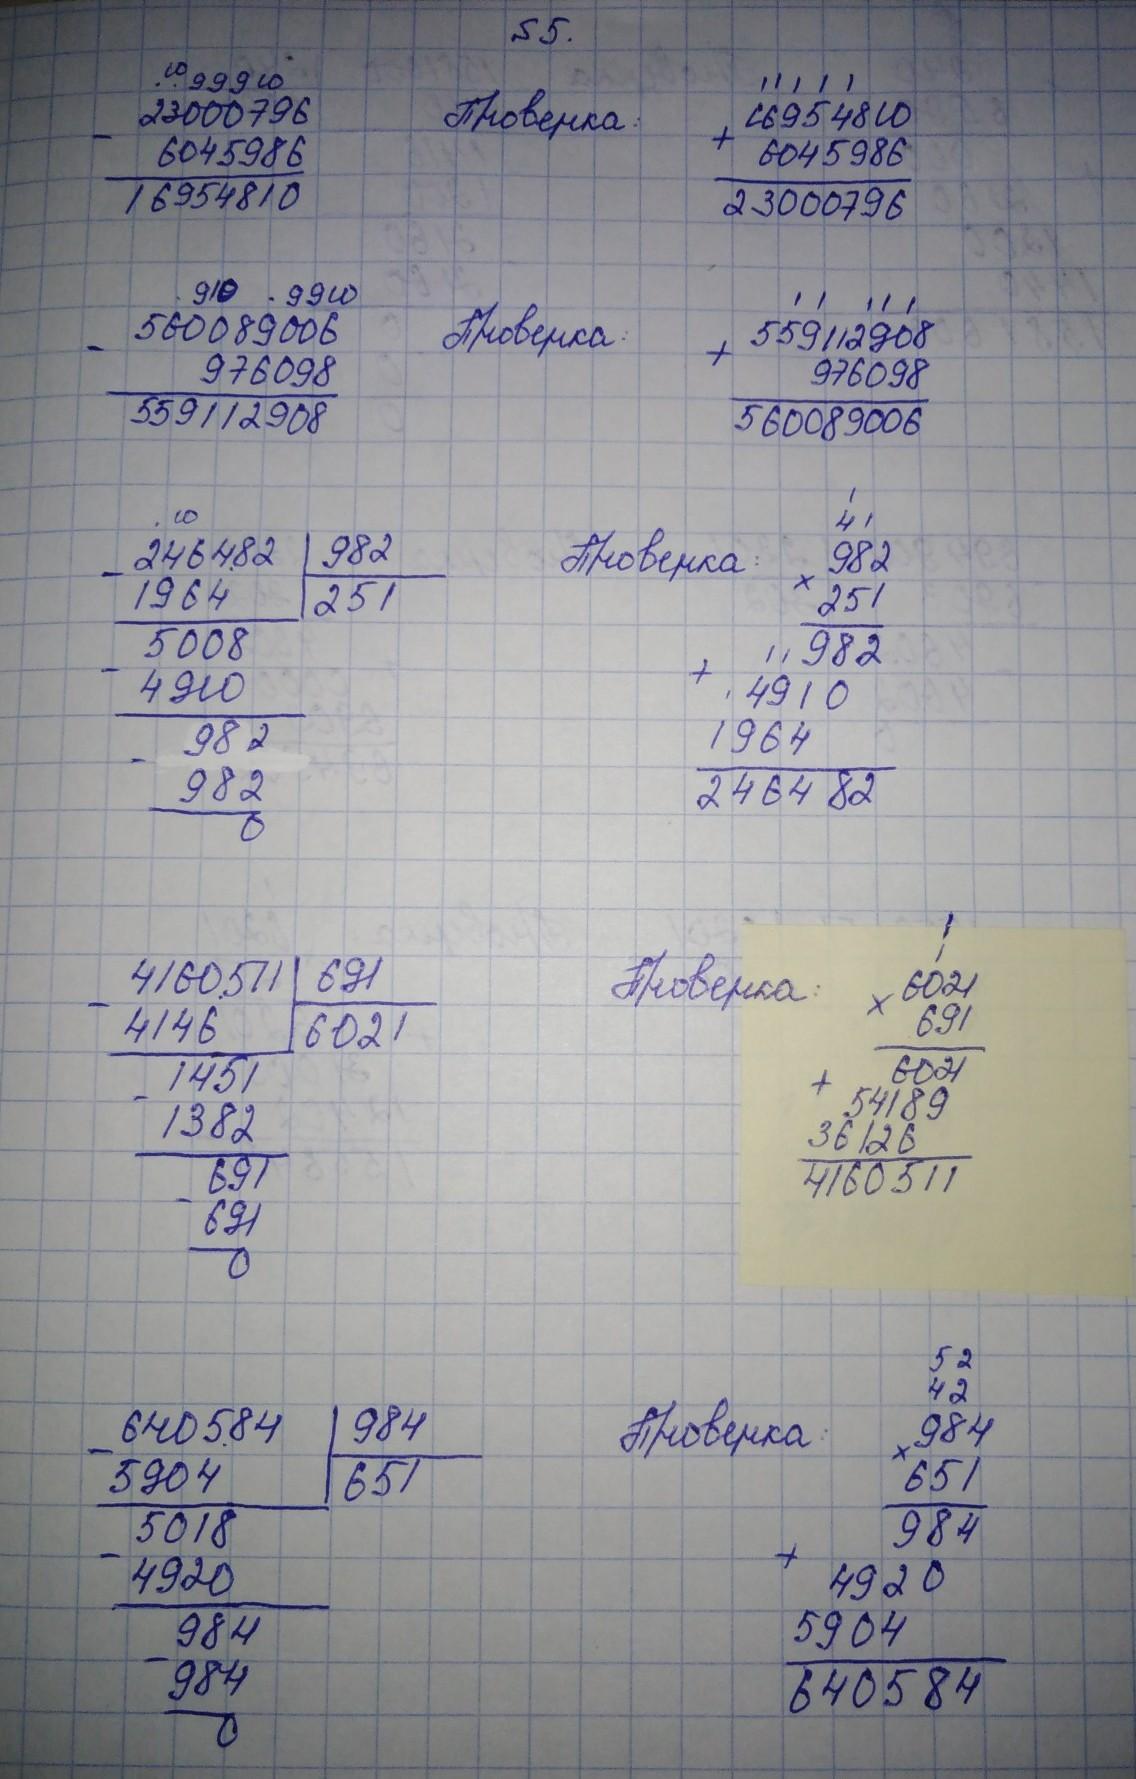 55.
. 10 9 9 9 10
23000796
- 6045986
16954810
Проверка:
1 1 1 1 1
16954810
+ 6045986
23000796
. 9 10 . 9 9 10
560089006
- 976098
559112908
Проверка:
1 1 1 1 1
559112908
+ 976098
560089006
. 10
- 246482 | 982
1964 | 251
5008
- 4910
982
- 982
0
Проверка:
1
4 1
982
× 251
982
+ 4910
1964
246482
- 4160511 | 691
4146 | 6021
1451
- 1382
691
- 691
0
Проверка:
1
1
6021
× 691
6021
+ 54189
36126
4160511
- 640584 | 984
5904 | 651
5018
- 4920
984
- 984
0
Проверка:
5 2
4 2
984
× 651
984
+ 4920
5904
640584